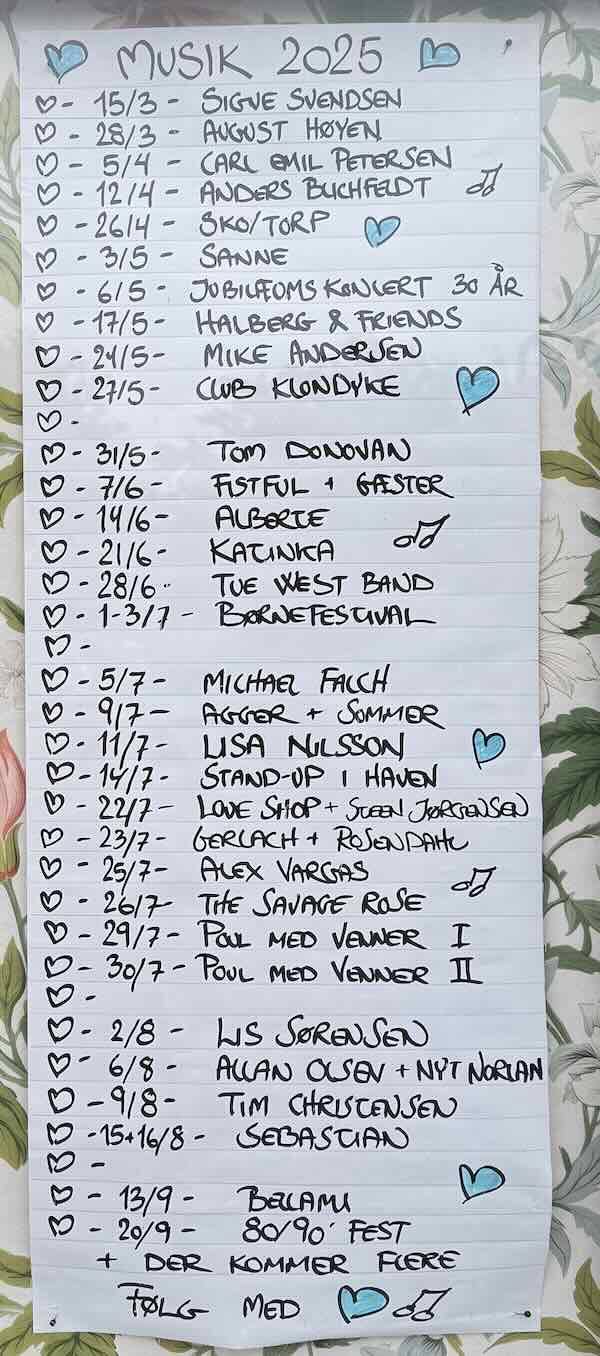 MUSIK 2025
- 15/3 - SIGNE SVENDSEN
- 28/3 - AUGUST HØYEN
- 5/4 - CARL EMIL PETERSEN
- 12/4 - ANDERS BUCHFELDT
- 26/4 - SKO/TORP
- 3/5 - SANNE
- 6/5 - JUBILÆUMSKONCERT 30 ÅR
- 17/5 - HALBERG & FRIENDS
- 24/5 - MIKE ANDERSEN
- 27/5 - CLUB KLONDYKE
-
- 31/5 - TOM DONOVAN
- 7/6 - FISTFUL + GÆSTER
- 14/6 - ALBERTE
- 21/6 - KATINKA
- 28/6 - TUE WEST BAND
- 1-3/7 - BØRNEFESTIVAL
-
- 5/7 - MICHAEL FALCH
- 9/7 - AGGER + SOMMER
- 11/7 - LISA NILSSON
- 14/7 - STAND-UP I HAVEN
- 22/7 - LOVE SHOP + STEEN JØRGENSEN
- 23/7 - GERLACH + ROSENDAHL
- 25/7 - ALEX VARGAS
- 26/7 - THE SAVAGE ROSE
- 29/7 - POUL MED VENNER I
- 30/7 - POUL MED VENNER II
-
- 2/8 - LIS SØRENSEN
- 6/8 - ALLAN OLSEN + NYT NORLAN
- 9/8 - TIM CHRISTENSEN
- 15+16/8 - SEBASTIAN
-
- 13/9 - BELLAMI
- 20/9 - 80/90' FEST
+ DER KOMMER FLERE
FØLG MED